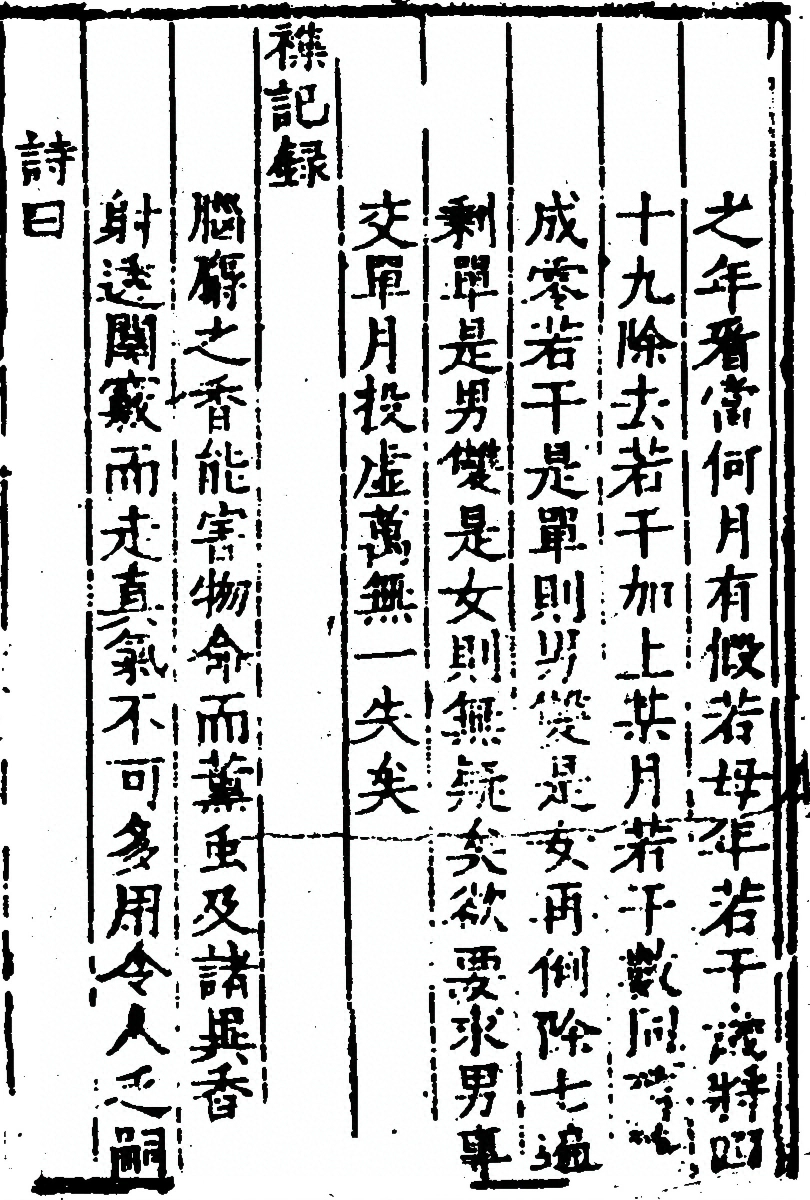 之年看當何月有假若母年若干歲將四
十九除去若干加上某月若干數同
成零若干是單則男雙是女再倒除七遍
剩單是男雙是女則無疑矣欲要求男專
交單月投虛萬無一失矣
襍記録
腦麝之香能害物命而薰䖝及諸異香
射透關竅而走真氣不可多用令人乏嗣
詩曰